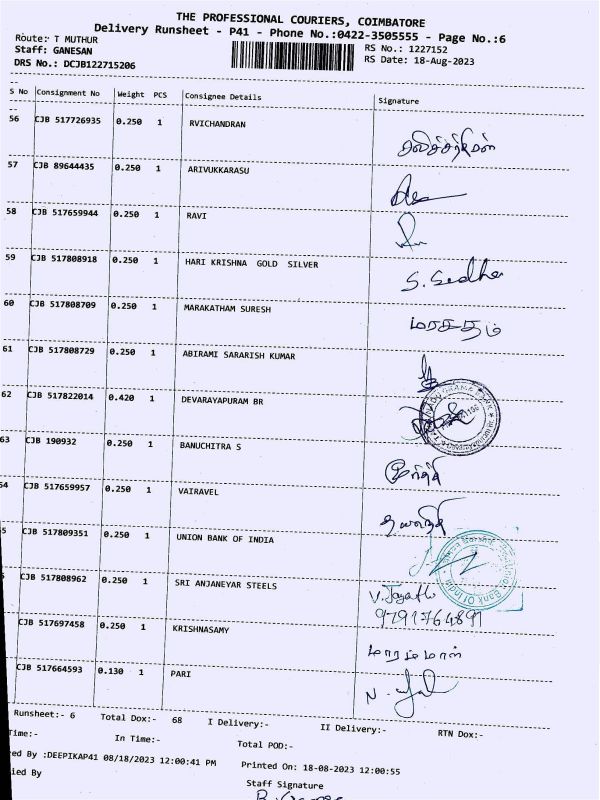 THE PROFESSIONAL COURIERS, COIMBATORE
Delivery Runsheet - P41 - Phone No.:0422-3505555 - Page No.:6
Route: T MUTHUR RS No.: 1227152
Staff: GANESAN RS Date: 18-Aug-2023
DRS No.: DCJB122715206
S No Consignment No Weight PCS Consignee Details Signature
56 CJB 517726935 0.250 1 RVICHANDRAN
57 CJB 89644435 0.250 1 ARIVUKKARASU
58 CJB 517659944 0.250 1 RAVI
59 CJB 517808918 0.250 1 HARI KRISHNA GOLD SILVER
60 CJB 517808709 0.250 1 MARAKATHAM SURESH மரகதம்
61 CJB 517808729 0.250 1 ABIRAMI SARARISH KUMAR
62 CJB 517822014 0.420 1 DEVARAYAPURAM BR
63 CJB 190932 0.250 1 BANUCHITRA S
54 CJB 517659957 0.250 1 VAIRAVEL
5 CJB 517809351 0.250 1 UNION BANK OF INDIA
CJB 517808962 0.250 1 SRI ANJANEYAR STEELS 9791764891
CJB 517697458 0.250 1 KRISHNASAMY
CJB 517664593 0.130 1 PARI
Runsheet:- 6 Total Dox:- 68 I Delivery:- II Delivery:- RTN Dox:-
Time:- In Time:- Total POD:-
ed By :DEEPIKAP41 08/18/2023 12:00:41 PM Printed On: 18-08-2023 12:00:55
ied By
Staff Signature